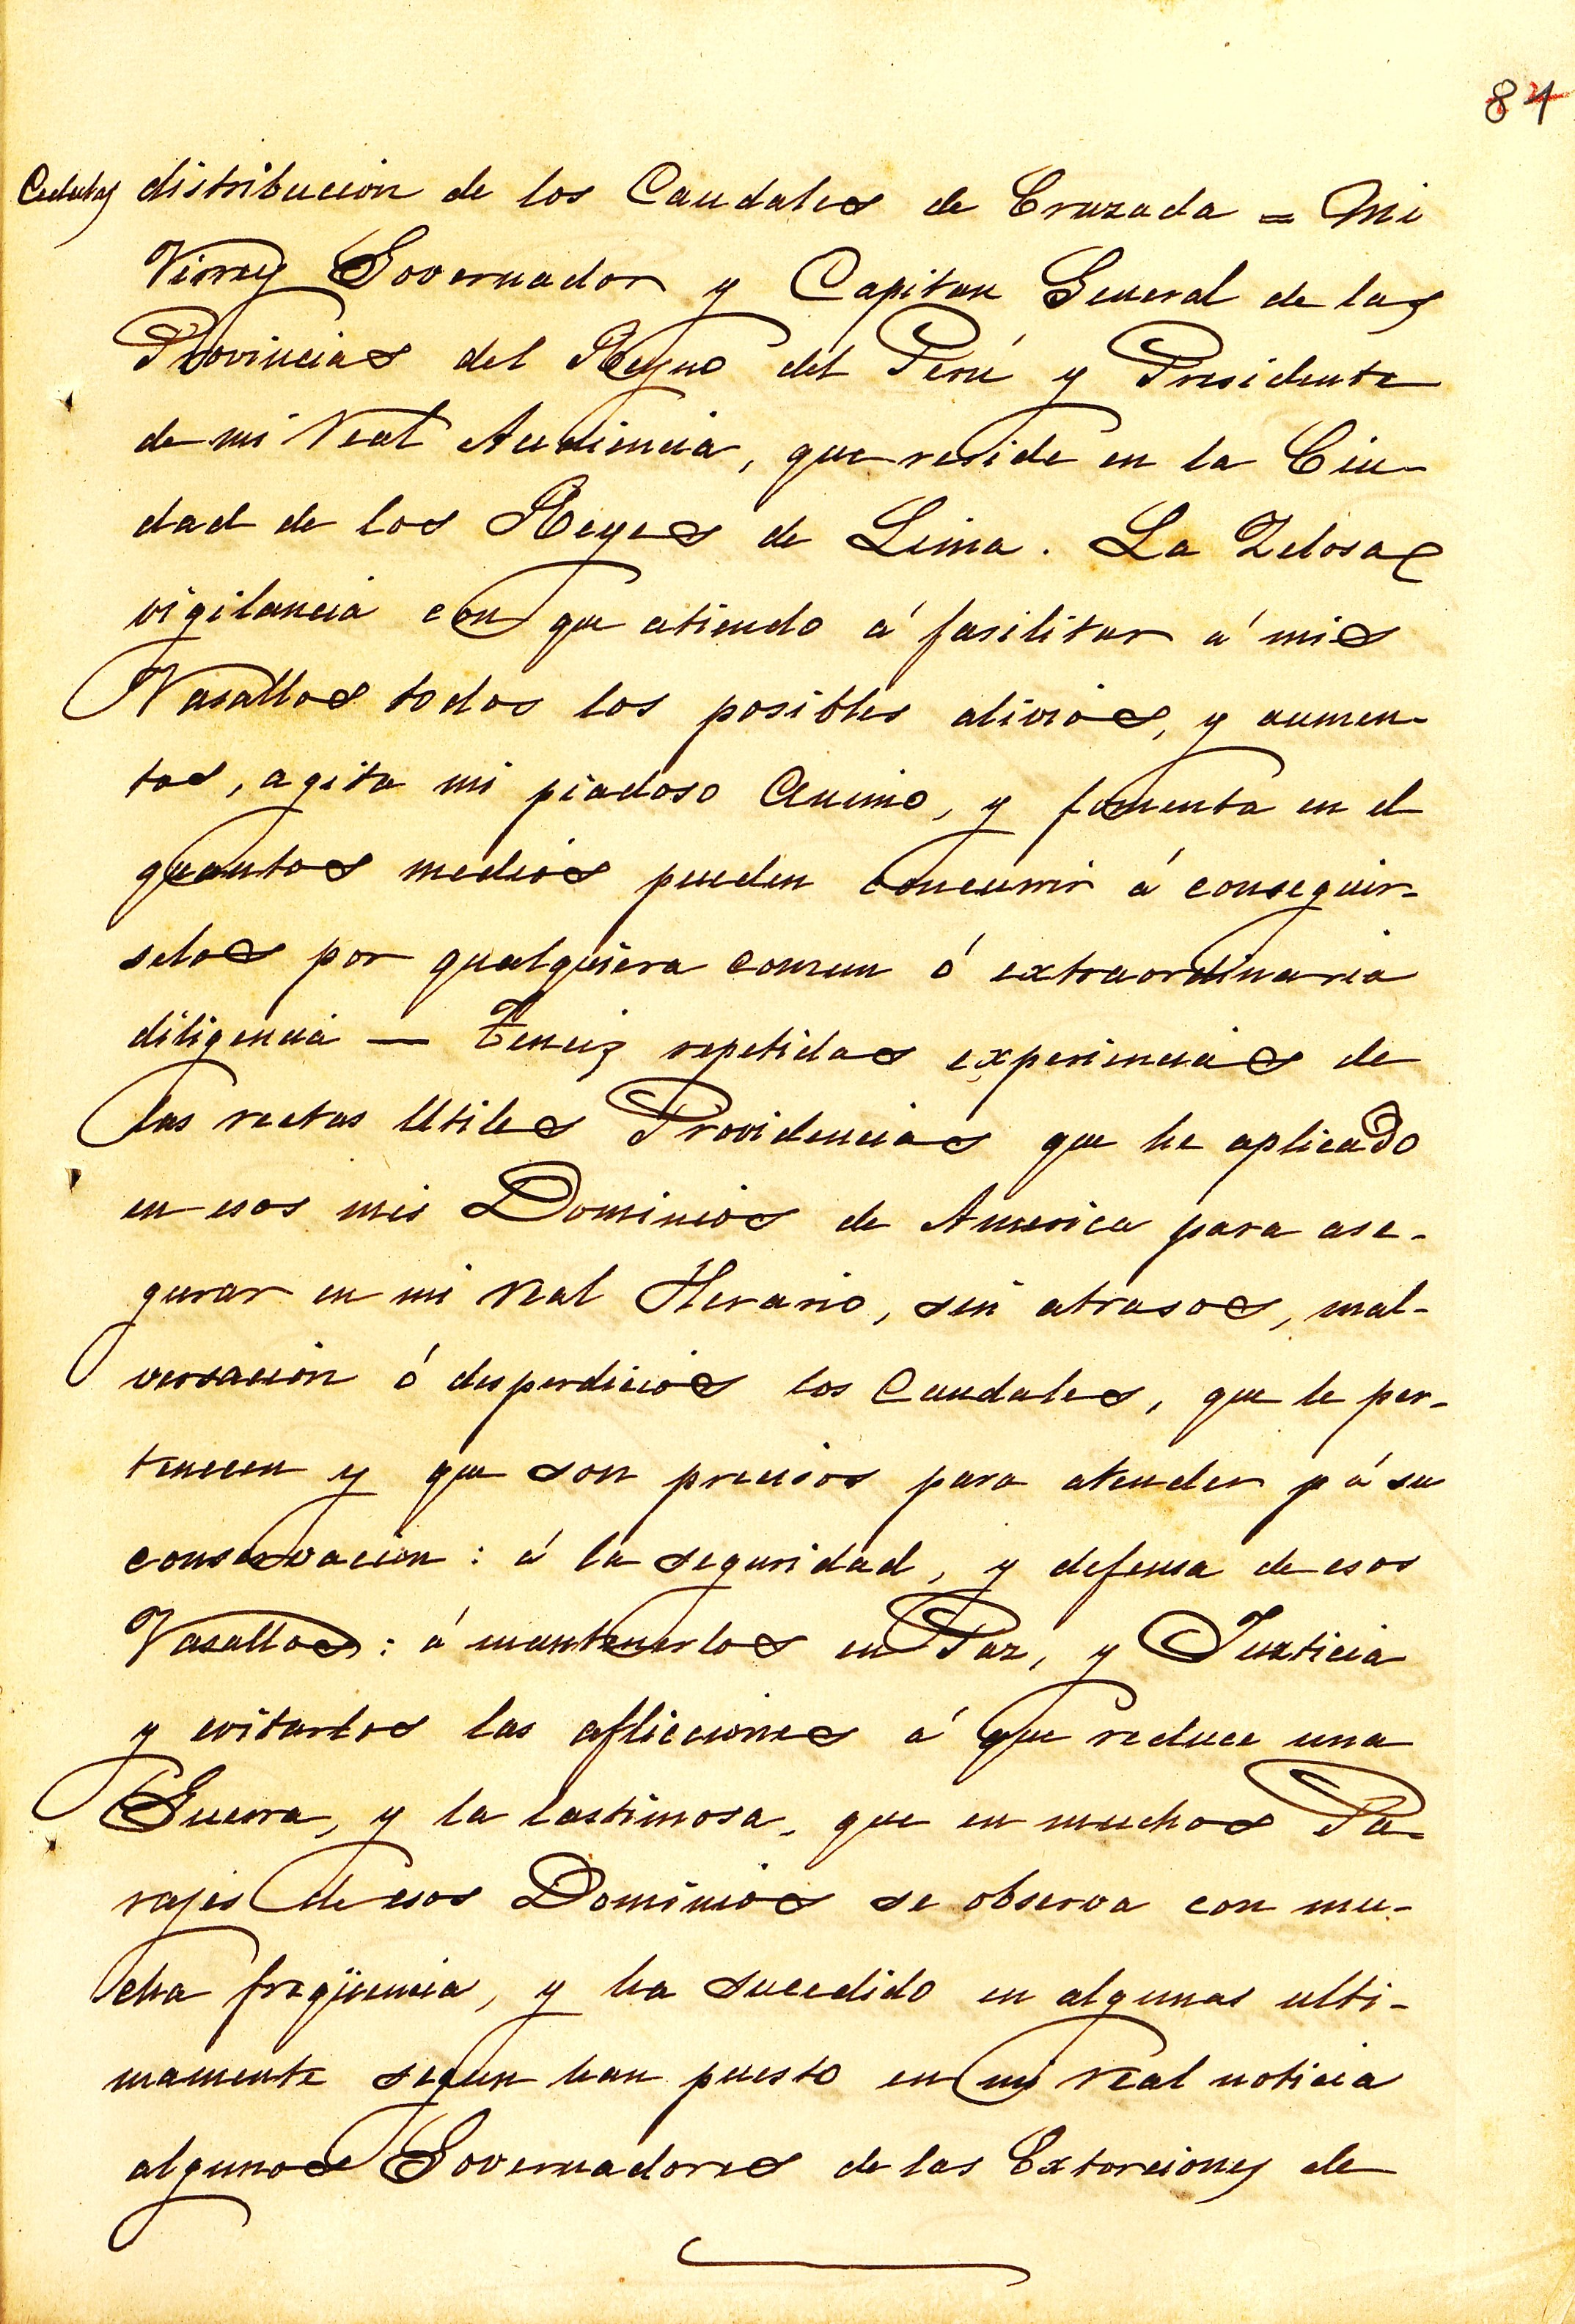 84
Cedulas distribucion de los Caudales de Cruzada = Mi
Virrey Governador y Capitan General de las
Provincias del Reyno del Perú y Presidente
de mi Real Audiencia, que reside en la Ciu-
dad de los Reyes de Lima. La Zelosa
vigilancia con que atiendo á fasilitar á mis
Vasallos todos los posibles alivios, y aumen-
tos, agita mi piadoso Animo, y fomenta en el
quantos medios pueden concurrir á conseguir-
selos por qualquiera comun ó extraordinaria
diligencia — Teneis repetidas experiencias de
las rectas Utiles Providencias que he aplicado
en esos mis Dominios de America para ase-
gurar en mi Real Herario, sin atrasos, mal-
versacion ó desperdicios los Caudales, que le per-
tenecen y que son precisos para atender p á su
conservacion: á la seguridad, y defensa de esos
Vasallos: á mantenerlos en Paz, y Justicia
y evitarlos las aflicciones á que reduce una
Guerra, y la lastimosa, que en muchos Pa-
rajes de esos Dominios se observa con mu-
cha freqüencia, y ha sucedido en algunas ulti-
mamente segun han puesto en mi Real noticia
algunos Governadores de las Extorciones de